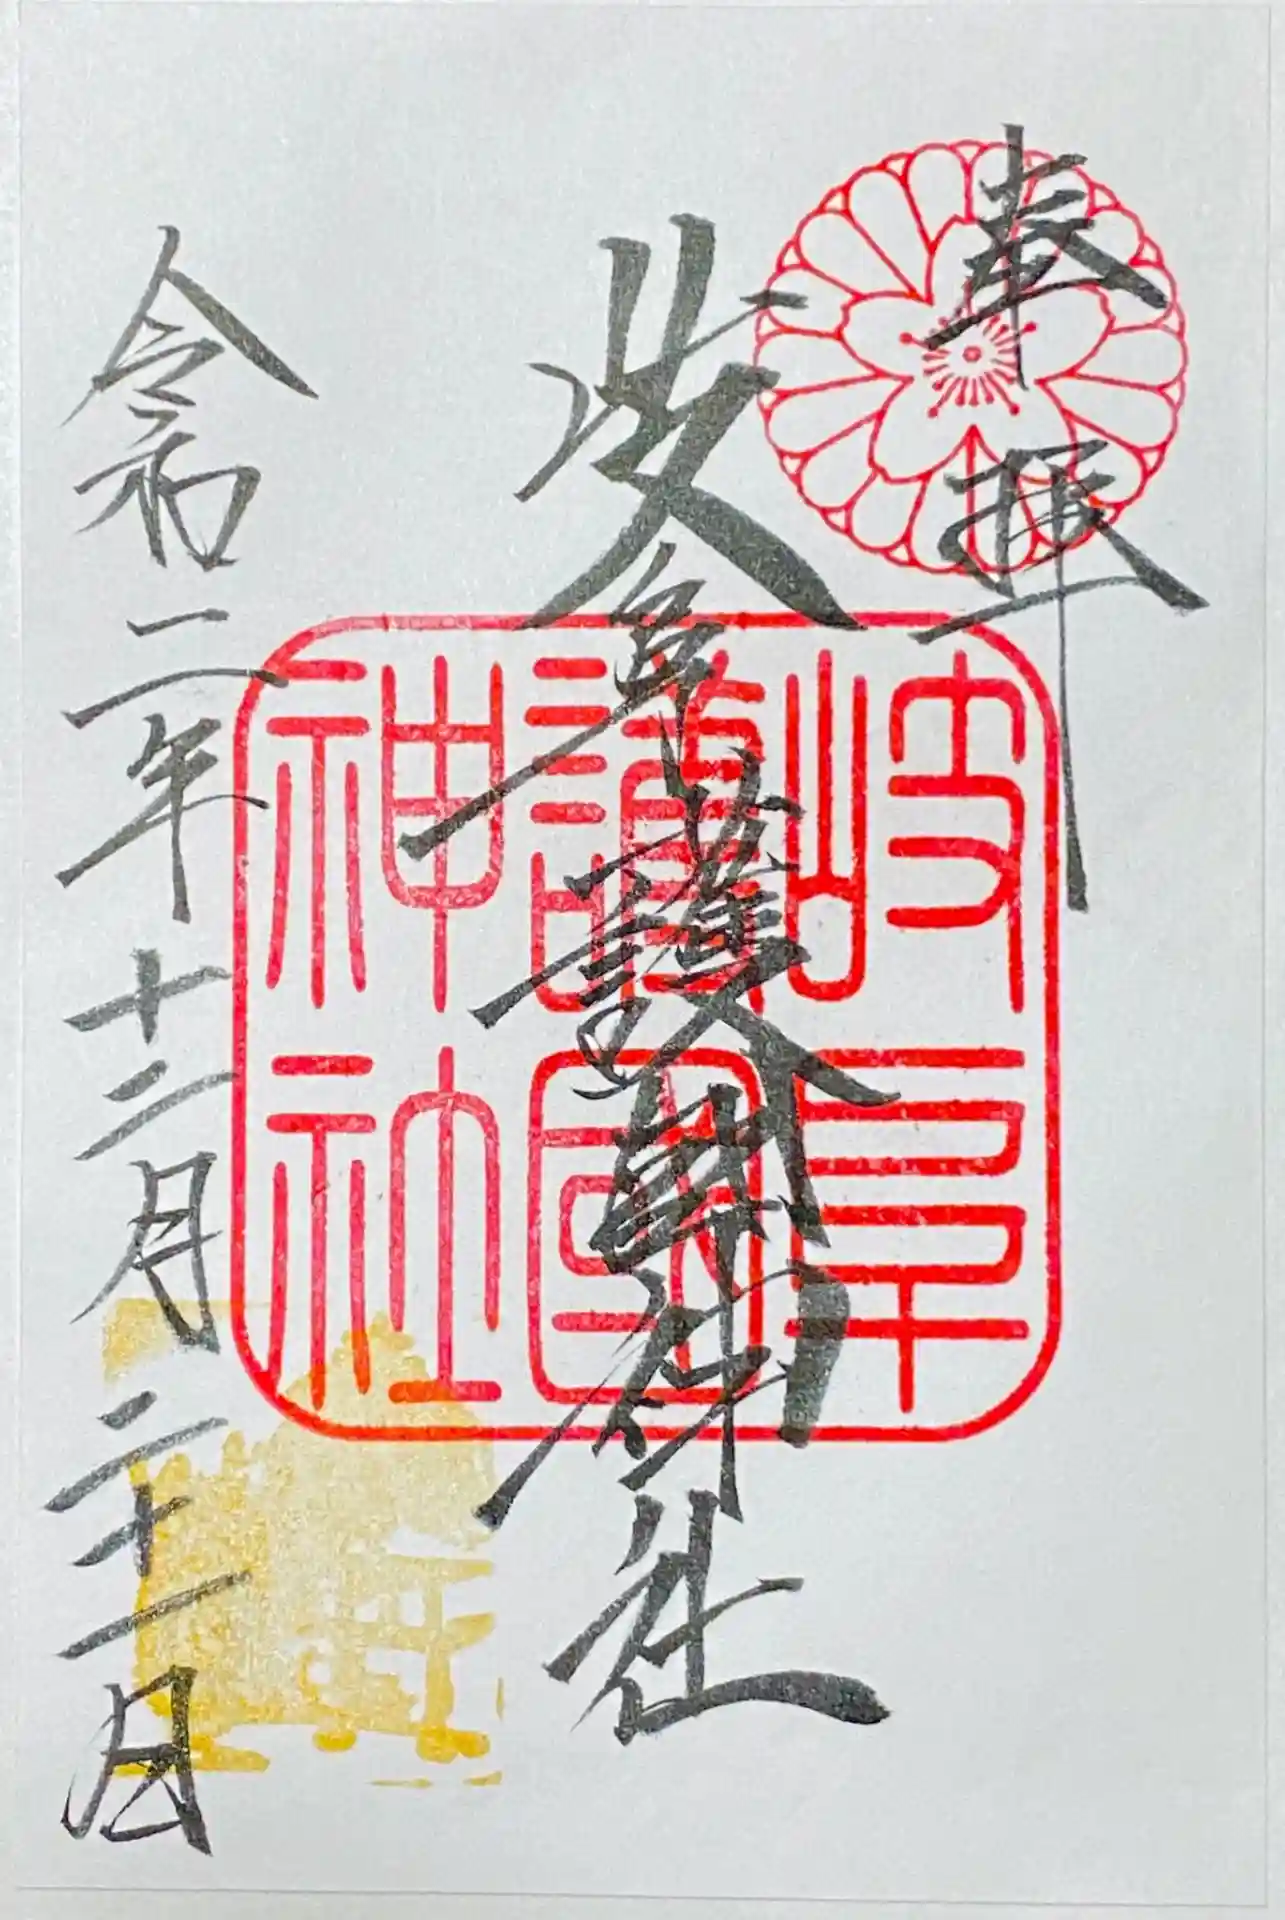 奉拝
岐阜護國神社
岐阜
護國
神社
令和二年十二月二十二日